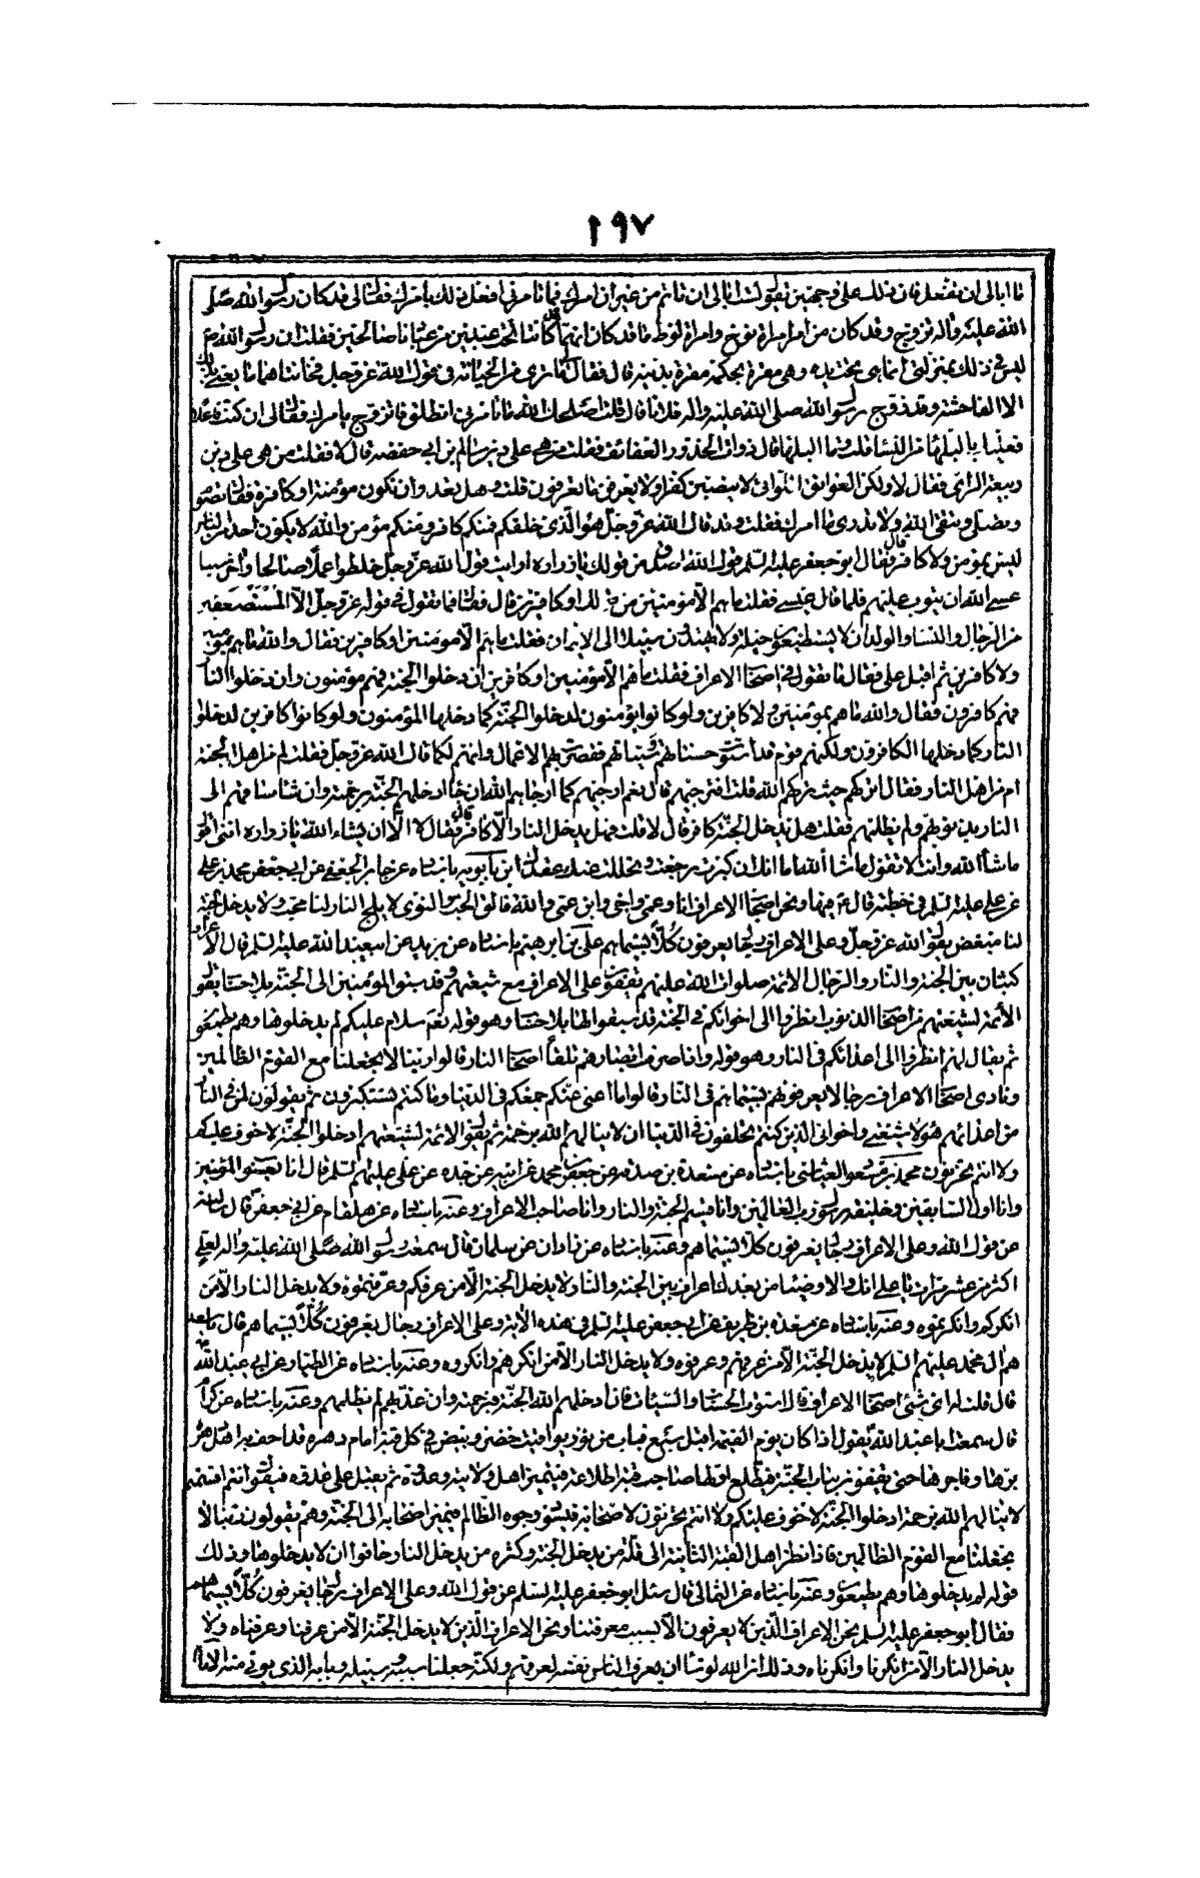 ١٩٧
ما ابالى ان تفعل فان ذلك على وجهين تقول لست ابالى ان تاثم من غير ان امرك فما تامرنى افعل ذلك بامرك فقال لى قد كان رسول الله صلى
الله عليه واله تزوج وقد كان من امر امراة نوح وامراة لوط ما قد كان انهما كانتا تحت عبدين من عبادنا صالحين فقلت ان رسول الله ص
ليس فى ذلك بمنزلتى انما هى تحت يده وهى مقرة بحكمه مقرة بدينه قال فقال لى ما ترى من الخيانة فى قول الله عز وجل فخانتاهما ما يعنى بذلك
الا الفاحشة وقد زوج رسول الله صلى الله عليه واله فلانا قال قلت اصلحك الله ما تامرنى انطلق فاتزوج بامرك فقال لى ان كنت فاعلا
فعليك بالبلهاء من النساء قلت وما البلهاء قال ذوات الخدور العفائف فقلت من هى على دين سالم بن ابى حفصه قال لا فقلت من هى على دين
ربيعة الراى فقال لا ولكن العواتق اللواتى لا ينصبن كفرا ولا يعرفن ما تعرفون قلت وهل تعدو ان تكون مؤمنة او كافرة فقال تصوم
وتصلى وتتقى الله ولا تدرى ما امركم فقلت وقد قال الله عز وجل هو الذى خلقكم فمنكم كافر ومنكم مؤمن والله لا يكون احد من الناس
ليس بمؤمن ولا كافر قال فقال ابو جعفر عليه السلم قول الله اصدق من قولك يا زرارة ارايت قول الله عز وجل خلطوا عملا صالحا واخر سيئا
عسى الله ان يتوب عليهم فلما قال عسى فقلت ما هم الا مؤمنين او كافرين قال فقال فما تقول فى قوله عز وجل الا المستضعفين
من الرجال والنساء والولدان لا يستطيعون حيلة ولا يهتدون سبيلا الى الايمان فقلت ما هم الا مؤمنين او كافرين فقال والله ما هم بمؤمنين
ولا كافرين ثم اقبل على فقال ما تقول فى اصحاب الاعراف فقلت ما هم الا مؤمنين او كافرين ان دخلوا الجنة فهم مؤمنون وان دخلوا النار
فهم كافرون فقال والله ما هم بمؤمنين ولا كافرين ولو كانوا مؤمنون لدخلوا الجنة كما دخلها المؤمنون ولو كانوا كافرين لدخلوا
النار كما دخلها الكافرون ولكنهم قوم قد استوت حسناتهم وسيئاتهم فقصرت بهم الاعمال وانهم لكما قال الله عز وجل فقلت امن اهل الجنة
ام من اهل النار فقال اتركهم حيث تركهم الله قلت افترجيهم قال نعم ارجيهم كما ارجاهم الله ان شاء ادخلهم الجنة برحمته وان شاء ساقهم الى
النار بذنوبهم ولم يظلمهم فقلت هل يدخل الجنة كافر قال لا قلت فهل يدخل النار الا كافر قال فقال لا الا ان يشاء الله يا زرارة اننى اقول
ما شاء الله وانت لا تقول ما شاء الله اما انك ان كبرت رجعت وتحللت عنك عقدك ابن بابويه باسناده عن جابر الجعفى عن ابى جعفر محمد بن على
عن على عليه السلم فى خطبة قال فيها ونحن اصحاب الاعراف انا وعمى واخى وابن عمى والله فالق الحب والنوى لا يلج النار لنا محب ولا يدخل الجنة
لنا مبغض يقول الله عز وجل وعلى الاعراف رجال يعرفون كلا بسيماهم على بن ابرهيم باسناده عن بريد عن ابيعبد الله عليه السلم قال الاعراف
كثبان بين الجنة والنار والرجال الائمة صلوات الله عليهم يقفون على الاعراف مع شيعتهم وقد سبق المؤمنين الى الجنة بلا حساب فيقول
الائمة لشيعتهم من اصحاب الذنوب انظروا الى اخوانكم فى الجنة قد سبقوا اليها بلا حساب وهو قوله تعم سلام عليكم لم يدخلوها وهم يطمعون
ثم يقال لهم انظروا الى اعدائكم فى النار وهو قوله واذا صرفت ابصارهم تلقاء اصحاب النار قالوا ربنا لا تجعلنا مع القوم الظالمين
ونادى اصحاب الاعراف رجالا يعرفونهم بسيماهم فى النار قالوا ما اغنى عنكم جمعكم فى الدنيا وما كنتم تستكبرون ثم يقولون لمن فى النار
من اعدائهم هؤلاء شيعتى واخوانى الذين كنتم تحلفون فى الدنيا ان لا ينالهم الله برحمة ثم يقول الائمة لشيعتهم ادخلوا الجنة لا خوف عليكم
ولا انتم تحزنون محمد بن مسعود العياشى باسناده عن مسعدة بن صدقه عن جعفر بن محمد عن ابيه عن جده عن على عليهم السلم قال انا يعسوب المؤمنين
وانا اول السابقين وخليفة رسول رب العالمين وانا قسيم الجنة والنار وانا صاحب الاعراف وعنه باسناده عن هلقام عن ابى جعفر قال سالته
عن قول الله وعلى الاعراف رجال يعرفون كلا بسيماهم وعنه باسناده عن زاذان عن سلمان قال سمعت رسول الله صلى الله عليه واله يقول لعلى
اكثر من عشر مرات يا على انك والاوصياء من بعدك اعراف بين الجنة والنار لا يدخل الجنة الا من عرفكم وعرفتموه ولا يدخل النار الا من
انكركم وانكرتموه وعنه باسناده عن سعد بن طريف عن ابى جعفر عليه السلم فى هذه الاية وعلى الاعراف رجال يعرفون كلا بسيماهم قال يا سعد
هم ال محمد عليهم السلم لا يدخل الجنة الا من عرفهم وعرفوه ولا يدخل النار الا من انكرهم وانكروه وعنه باسناده عن الطيار عن ابى عبد الله
قال قلت له اى شئ اصحاب الاعراف قال استوت الحسنات والسيئات فان ادخلهم الله الجنة فبرحمته وان عذبهم لم يظلمهم وعنه باسناده عن كرام
قال سمعت ابا عبد الله يقول اذا كان يوم القيمة اقبل سبع قباب من نور يواقيت خضر وبيض فى كل قبة امام دهره قد احف به اهل دهره
برها وفاجرها حتى يقفون بباب الجنة فيطلع اولها صاحب قبة اطلاعة فيتميز اهل ولايته وعدوه ثم يقبل على عدوه فيقول انتم اقسمتم
لا ينالهم الله برحمة ادخلوا الجنة لا خوف عليكم ولا انتم تحزنون لاصحابه فيسود وجوه الظالم فيتميز اصحابه الى الجنة وهم يقولون ربنا لا
تجعلنا مع القوم الظالمين فاذا نظر اهل القبة الثانية الى قلة من يدخل الجنة وكثرة من يدخل النار خافوا ان لا يدخلوها وذلك
قوله لم يدخلوها وهم يطمعون وعنه باسناده عن الثمالى قال سئل ابو جعفر عليه السلم عن قول الله وعلى الاعراف رجال يعرفون كلا بسيماهم
فقال ابو جعفر عليه السلم نحن الاعراف الذين لا يعرفون الا بسبب معرفتنا ونحن الاعراف الذين لا يدخل الجنة الا من عرفنا وعرفناه ولا
يدخل النار الا من انكرنا وانكرناه وذلك ان الله لو شاء ان يعرف الناس نفسه لعرفهم ولكنه جعلنا سببه وسبيله وبابه الذى يؤتى منه